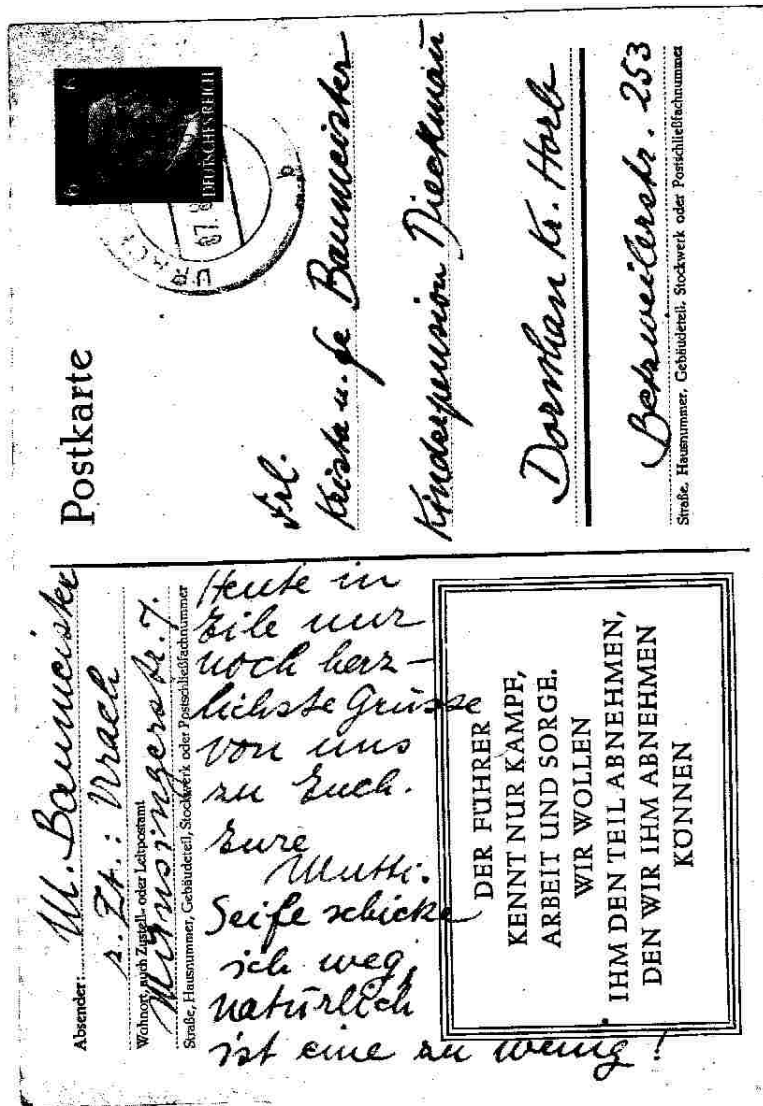 Absender: M. Baumeister
z. Zt.: Urach
Wohnort, auch Zustell- oder Leitpostamt
Münsingerstr. 7.
Straße, Hausnummer, Gebäudeteil, Stockwerk oder Postschließfachnummer
Heute in
Eile nur
noch herz-
lichste Grüsse
von uns
zu Euch.
Eure
Mutti.
Seife schicke
ich weg,
natürlich
ist eine zu wenig!
DER FÜHRER
KENNT NUR KAMPF,
ARBEIT UND SORGE.
WIR WOLLEN
IHM DEN TEIL ABNEHMEN,
DEN WIR IHM ABNEHMEN
KÖNNEN
Postkarte
6 6
DEUTSCHES REICH
URACH
b
Frl.
Krista u. Fe Baumeister
Kinderpension Dieckmann
Dornhan Kr. Horb
Betzweilerstr. 253
Straße, Hausnummer, Gebäudeteil, Stockwerk oder Postschließfachnummer